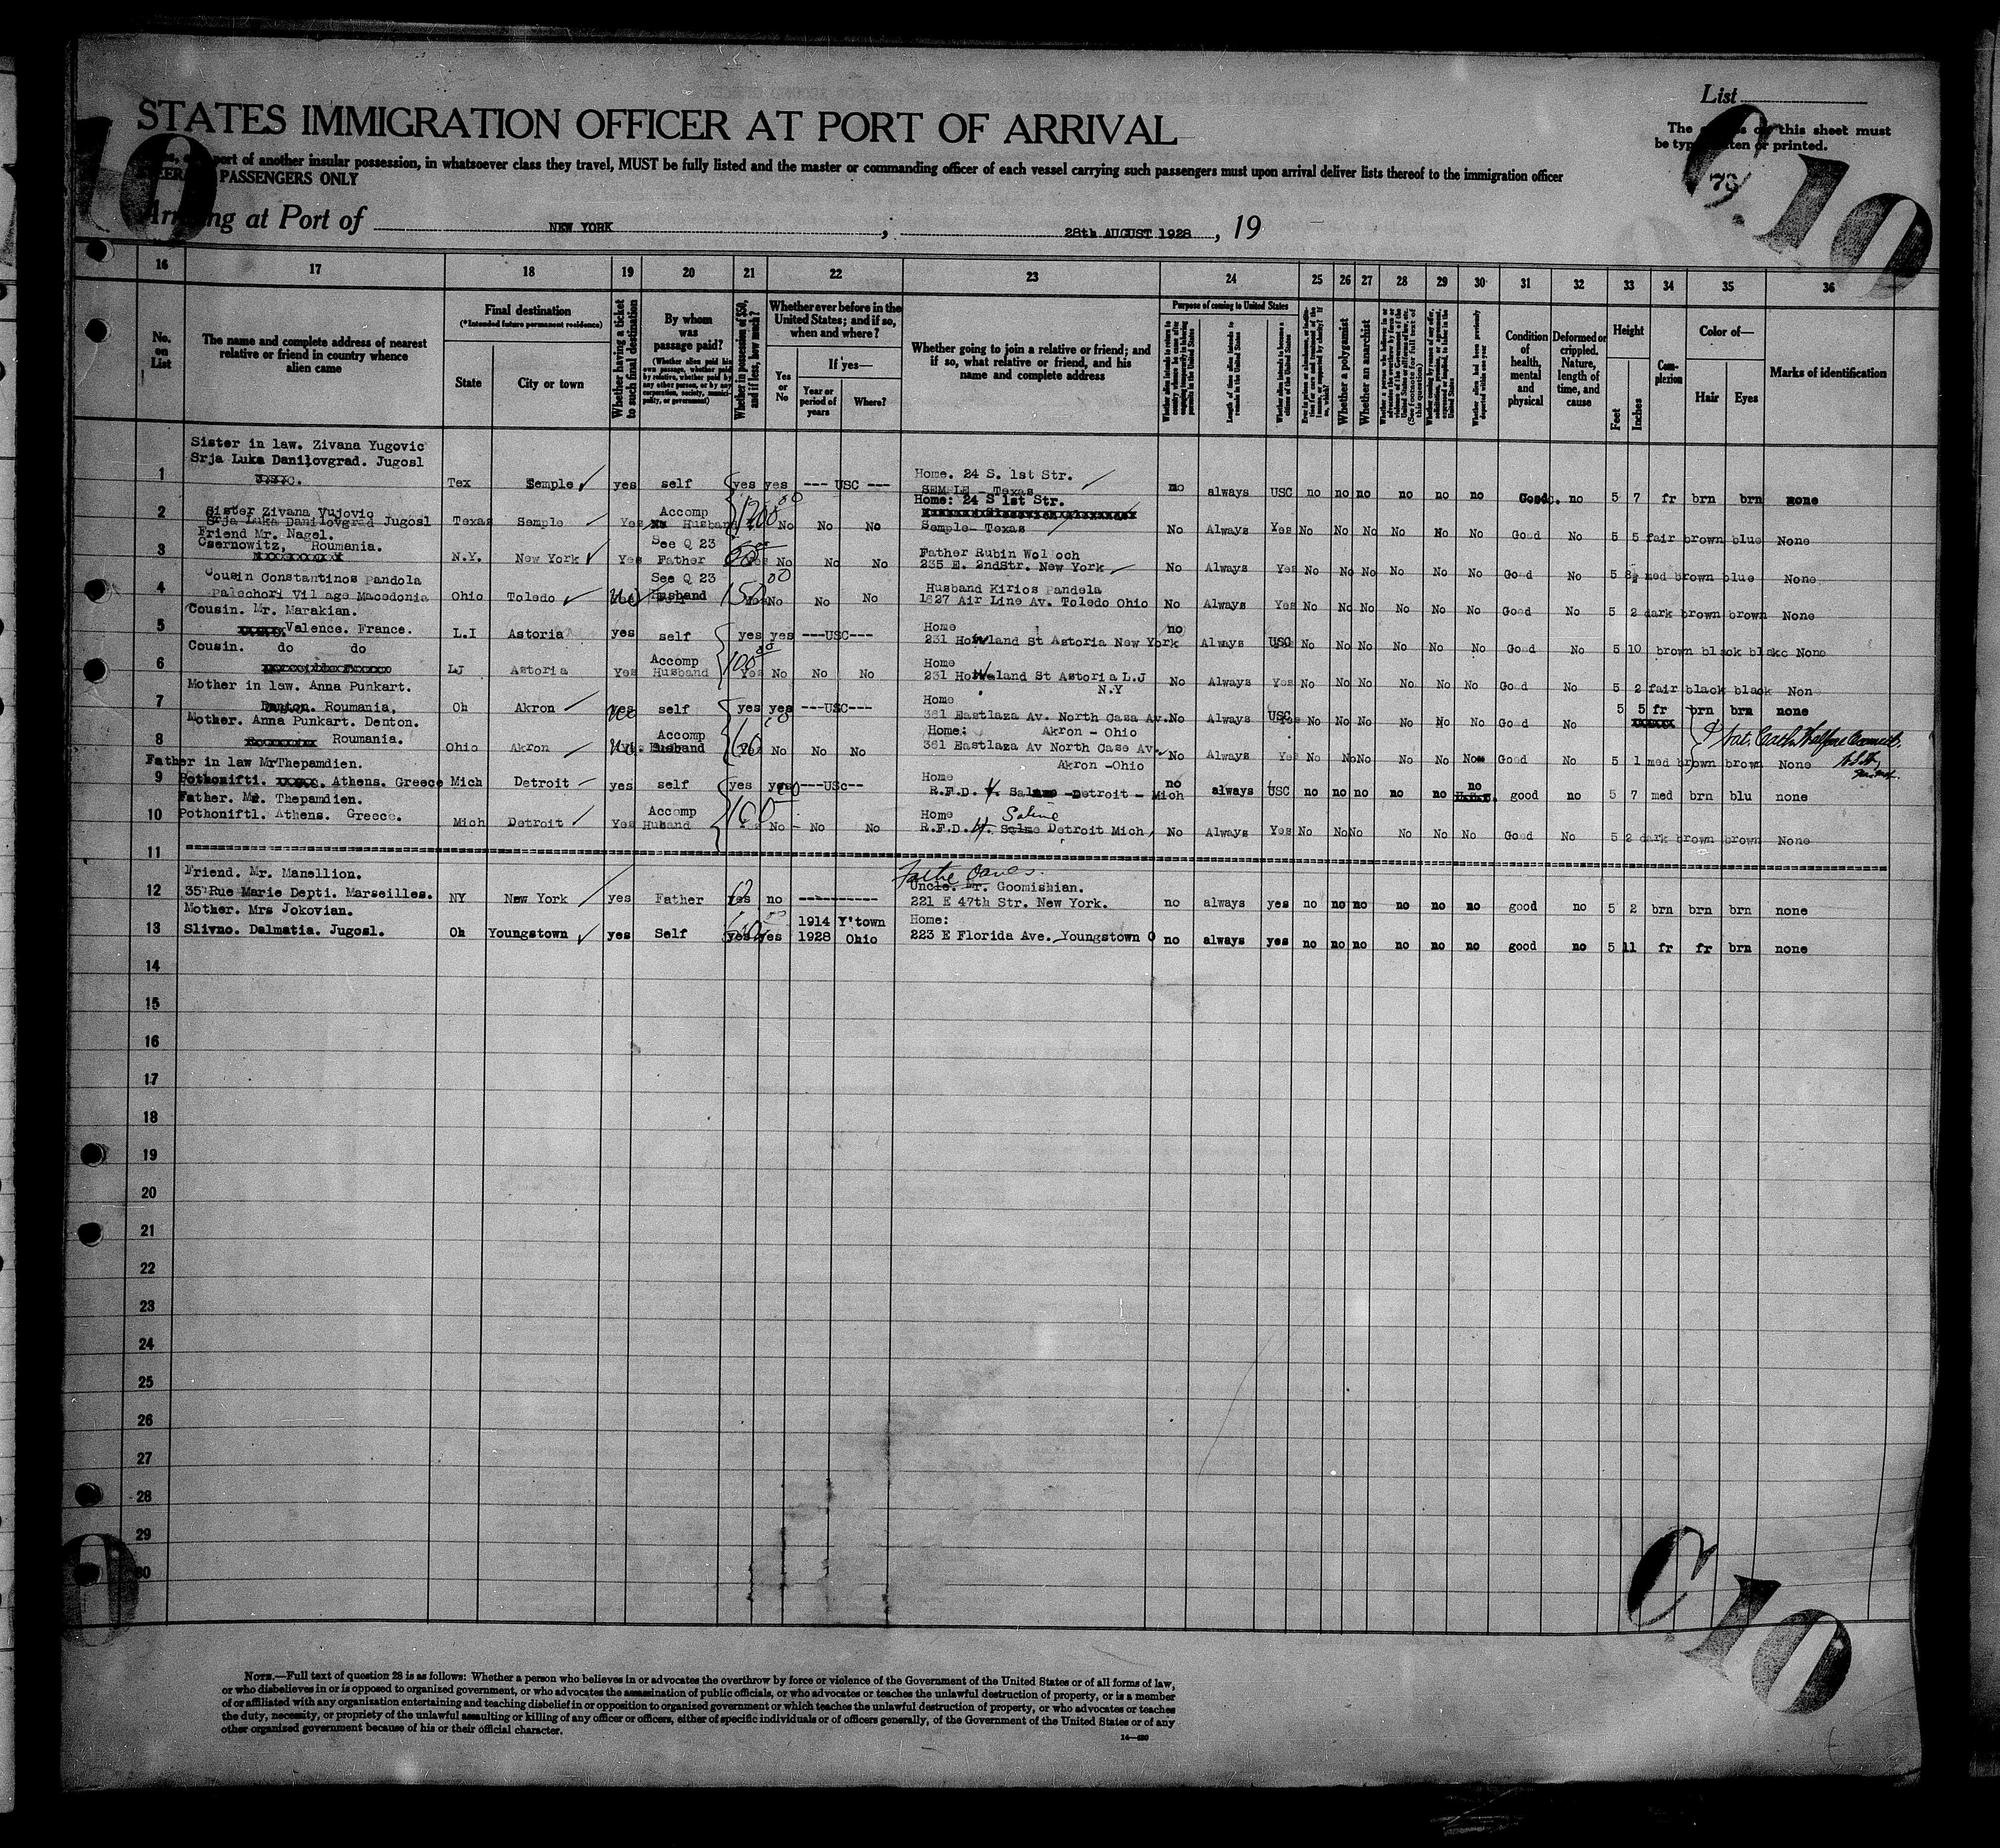 List
STATES IMMIGRATION OFFICER AT PORT OF ARRIVAL
The of this sheet must
be typewritten or printed.
port of another insular possession, in whatsoever class they travel, MUST be fully listed and the master or commanding officer of each vessel carrying such passengers must upon arrival deliver lists thereof to the immigration officer
PASSENGERS ONLY
10
C 10
Arriving at Port of NEW YORK ; 28th AUGUST 1928 , 19
16 17 18 19 20 21 22 23 24 25 26 27 28 29 30 31 32 33 34 35 36
No. on List
The name and complete address of nearest relative or friend in country whence alien came
Final destination
(*Intended future permanent residence)
State
City or town
Whether having a ticket to such final destination
By whom was passage paid?
(Whether alien paid his own passage, whether paid by relative, whether paid by any other person, or by any corporation, society, municipality, or government)
Whether in possession of $50, and if less, how much?
Whether ever before in the United States; and if so, when and where?
Yes or No
If yes—
Year or period of years
Where?
Whether going to join a relative or friend; and if so, what relative or friend, and his name and complete address
Purpose of coming to United States
Length of time alien intends to remain in the United States
Whether alien intends to become a citizen of the United States
Whether a polygamist
Whether an anarchist
Condition of health, mental and physical
Deformed or crippled. Nature, length of time, and cause
Height
Feet
Inches
Complexion
Color of—
Hair
Eyes
Marks of identification
Sister in law. Zivana Yugovic
Srja Luka Danilovgrad. Jugosl
1 Tex Semple yes self yes yes --- USC --- Home. 24 S. 1st Str. SEMPLE - Texas no always USC no no no no no no Good. no 5 7 fr brn brn none
2 Sister Zivana Vujovic
Srja Luka Danilovgrad Jugosl Texas Semple Yes Accomp Husband 1200 No No No Home: 24 S 1st Str. Semple- Texas No Always Yes No No No No No No Good No 5 5 fair brown blue None
Friend Mr. Nagel.
3 Csernowitz, Roumania. N.Y. New York Yes See Q 23 Father Yes No No No Father Rubin Wolloch 235 E. 2ndStr. New York No Always Yes No No No No No No Good No 5 8½ med brown blue None
Cousin Constantinos Pandola
4 Palechori Village Macedonia Ohio Toledo See Q 23 Husband 150 No No No Husband Kirios Pandela 1827 Air Line Av. Toledo Ohio No Always Yes No No No No No No Good No 5 2 dark brown brown None
Cousin. Mr. Marakian.
5 Valence. France. L.I Astoria yes self yes yes ---USC--- Home 231 Howland St Astoria New York no Always USC No No No No No No Good No 5 10 brown black blake None
Cousin. do do
6 LJ Astoria Yes Accomp Husband 100 Yes No No No Home 231 Howeland St Astoria L.J N.Y No Always Yes No No No No No No Good No 5 2 fair black black Non
Mother in law. Anna Punkart.
7 Denton. Roumania, Oh Akron yes self yes yes ---USC--- Home 361 Eastlaza Av. North Casa Av. Akron - Ohio No Always USC No No No No No No Good No 5 5 fr brn brn none
Mother. Anna Punkart. Denton.
8 Roumania. Ohio Akron Accomp Husband 60 Yes No No No Home: 361 Eastlaza Av North Case Av. Akron -Ohio No Always Yes No No No No No No Good No 5 1 med brown brown None
Nat. Cath. Welfare Council.
Father in law MrThepamdien.
9 Pothonifti. Athens. Greece Mich Detroit yes self yes yes ---USc-- Home R.F.D. 4. Saline -Detroit - Mich no always USC no no no no no no good no 5 7 med brn blu none
Father. Mr. Thepamdien.
10 Pothoniftl. Athens. Greece. Mich Detroit Yes Accomp Husband 100 Yes No - No No Home Saline R.F.D. 4. Salme Detroit Mich, No Always Yes No No No No No No Good No 5 2 dark brown brown None
11
Friend. Mr. Manellion.
12 35 Rue Marie Depti. Marseilles. NY New York yes Father yes no Uncle. Mr. Goomishian. 221 E 47th Str. New York. no always yes no no no no no no good no 5 2 brn brn brn none
Mother. Mrs Jokovian.
13 Slivno. Dalmatia. Jugosl. Oh Youngstown yes Self yes yes 1914 1928 Y'town Ohio Home: 223 E Florida Ave. Youngstown O no always yes no no no no no no good no 5 11 fr fr brn none
14
15
16
17
18
19
20
21
22
23
24
25
26
27
28
29
30
C 10
NOTE.—Full text of question 28 is as follows: Whether a person who believes in or advocates the overthrow by force or violence of the Government of the United States or of all forms of law,
or who disbelieves in or is opposed to organized government, or who advocates the assassination of public officials, or who advocates or teaches the unlawful destruction of property, or is a member
of or affiliated with any organization entertaining and teaching disbelief in or opposition to organized government or which teaches the unlawful destruction of property, or who advocates or teaches
the duty, necessity, or propriety of the unlawful assaulting or killing of any officer or officers, either of specific individuals or of officers generally, of the Government of the United States or of any
other organized government because of his or their official character.
14—420